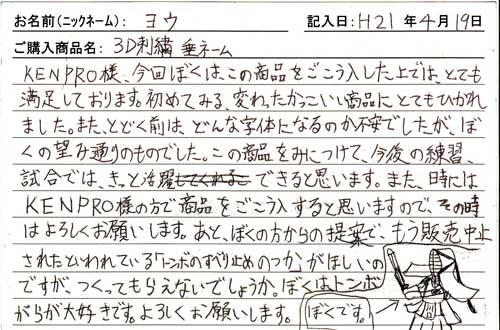 お名前(ニックネーム): ヨウ 記入日: H21 年4月19日
ご購入商品名: 3D刺繍 垂ネーム
KENPRO様、今回ぼくは、この商品をごこう入した上では、とても
満足しております。初めてみる、変わったかっこいい商品にとてもひかれ
ました。また、とどく前は、どんな字体になるのか不安でしたが、ぼ
くの望み通りのものでした。この商品をみにつけて、今後の練習、
試合では、きっと活躍できると思います。また、時には
KENPRO様の方で商品をごこう入すると思いますので、その時
はよろしくお願いします。あと、ぼくの方からの提案で、もう販売中止
されたといわれている「トンボのすべり止めのつか」がほしいの
ですが、つくってもらえないでしょうか。ぼくはトンボ
がらが大好きです。よろしくお願いします。
ぼくです。